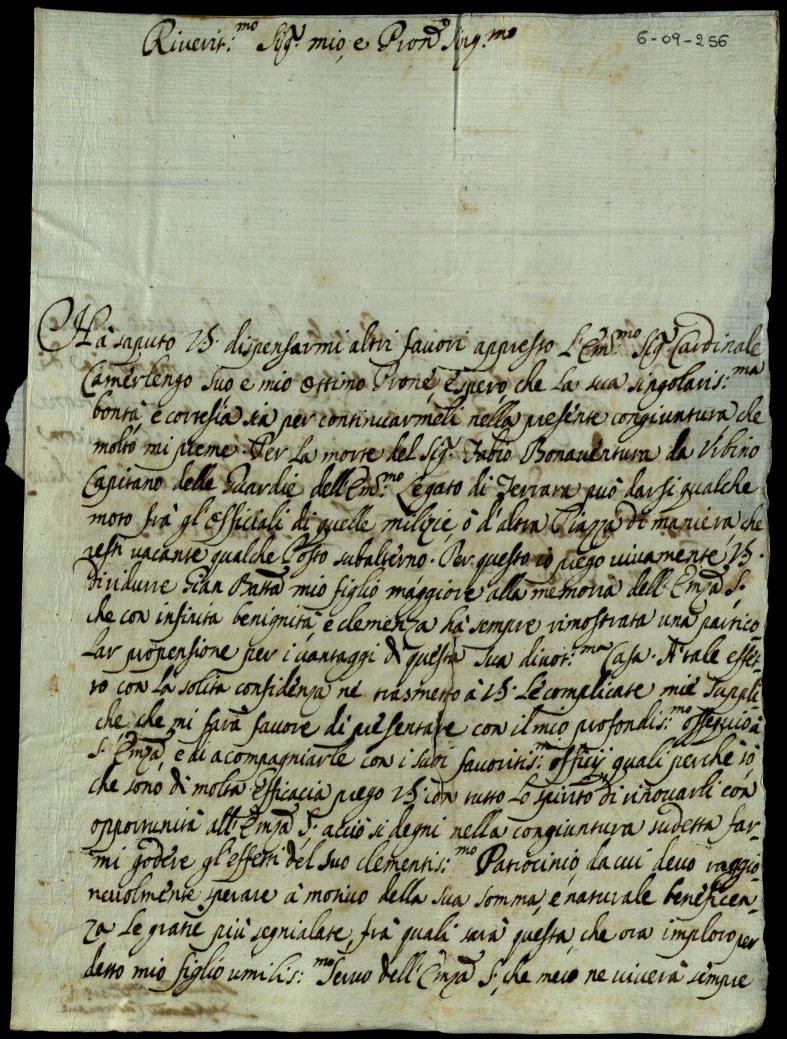 Riverit.mo Sig.r mio, e Pron.e Sing.mo
6-09-256
Hà saputo V.S. dispensarmi altri favori appresso l'Em.mo Sig.r Cardinale
Camerlengo suo e mio ottimo Prone, e spero, che la sua singolaris.ma
bontà, e cortesia sia per continuarmeli nella presente congiuntura che
molto mi preme. Per la morte del Sig.r Fabio Bonaventura da Urbino
Capitano delle Guardie dell'Em.mo Legato di Ferrara può darsi qualche
moto frà gl'Officiali di quelle milizie ò d'altra Piazza di maniera che
resti vacante qualche Posto subalterno. Per questo io prego vivamente V.S.
di ridurre Gian Batta mio figlio maggiore alla memoria dell'Emza S.
che con infinita benignità, e clemenza hà sempre rimostrata una partico-
lar propensione per i vantaggi di questa sua divot.ma Casa. A tale effet-
to con la solita confidenza ne trasmetto à V.S. le complicate mie suppli-
che, che mi farà favore di presentare con il mio profondis.mo ossequio à
S. Emza, e di acompagniarle con i suoi favoritis.mi officij quali perche sò,
che sono di molta efficacia prego V.S. con tutto lo spirito di rinovarli con
opportunità all'Emza S. acciò si degni nella congiuntura sudetta far-
mi godere gl'effetti del suo clementis.mo Patrocinio, da cui devo raggio-
nevolmente sperare à motivo della sua somma, e naturale beneficen-
za le gratie più segnialate, frà quali sarà questa, che ora imploro per
detto mio figlio umilis.mo servo dell'Emza S. che meco ne viverà sempre